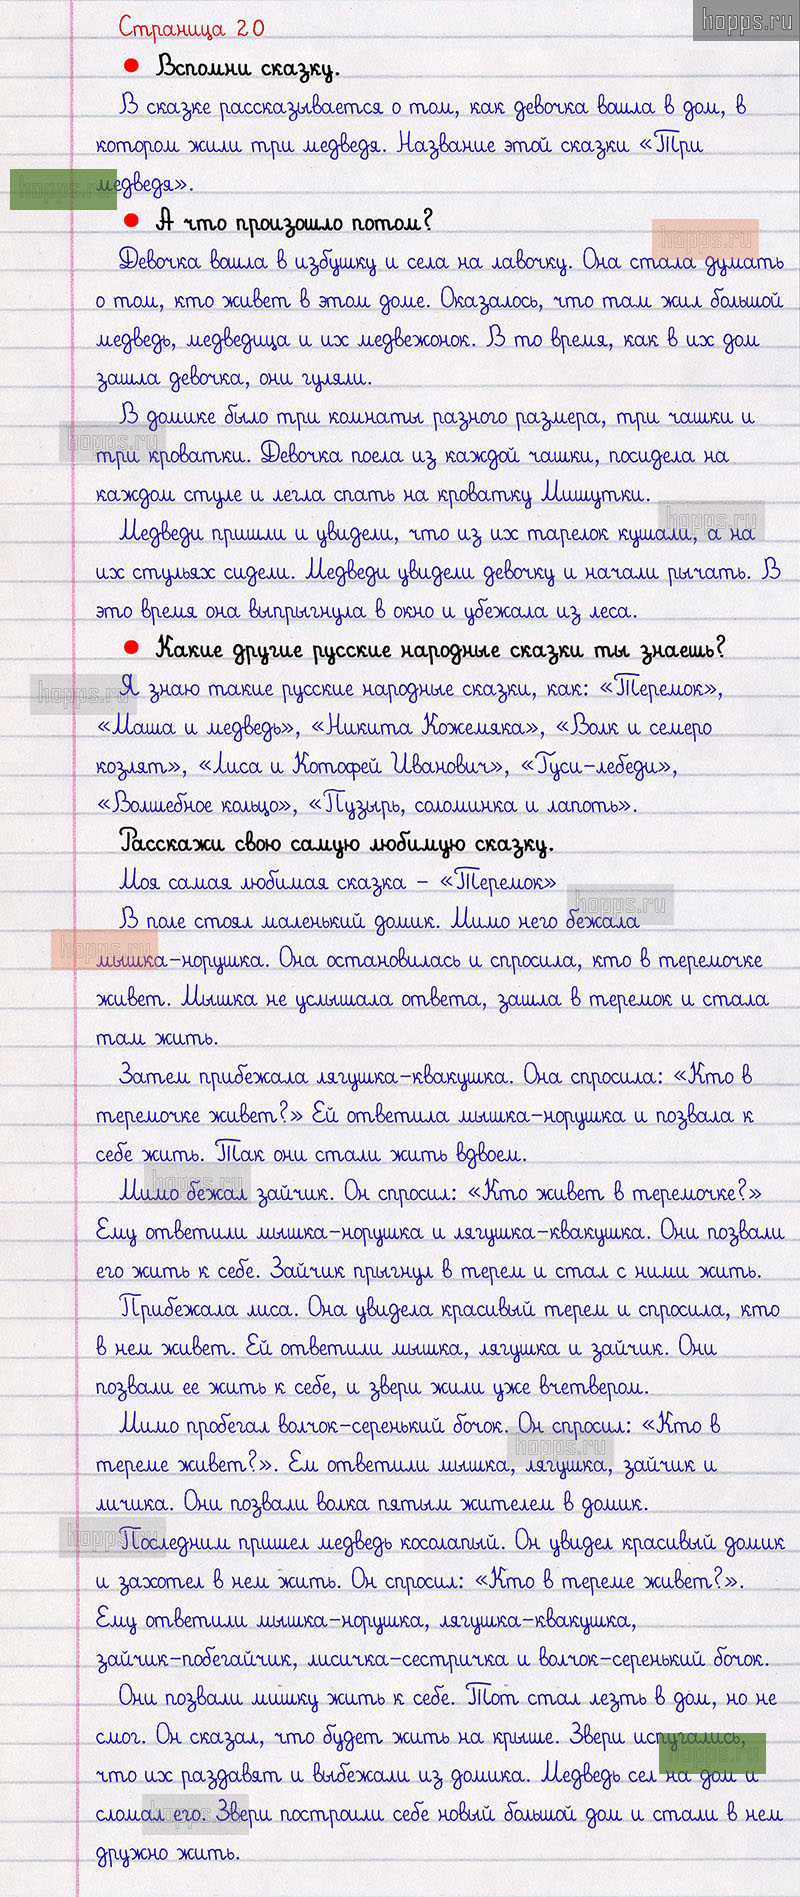 hopps.ru
Страница 20
• Вспомни сказку.
В сказке рассказывается о том, как девочка вошла в дом, в
котором жили три медведя. Название этой сказки «Три
медведя».
hopps.ru
• А что произошло потом?
hopps.ru
Девочка вошла в избушку и села на лавочку. Она стала думать
о том, кто живет в этом доме. Оказалось, что там жил большой
медведь, медведица и их медвежонок. В то время, как в их дом
зашла девочка, они гуляли.
В домике было три комнаты разного размера, три чашки и
hopps.ru
три кроватки. Девочка поела из каждой чашки, посидела на
каждом стуле и легла спать на кроватку Мишутки.
hopps.ru
Медведи пришли и увидели, что из их тарелок кушали, а на
их стульях сидели. Медведи увидели девочку и начали рычать. В
это время она выпрыгнула в окно и убежала из леса.
• Какие другие русские народные сказки ты знаешь?
hopps.ru
Я знаю такие русские народные сказки, как: «Теремок»,
«Маша и медведь», «Никита Кожемяка», «Волк и семеро
козлят», «Лиса и Котофей Иванович», «Гуси-лебеди»,
«Волшебное кольцо», «Пузырь, соломинка и лапоть».
Расскажи свою самую любимую сказку.
Моя самая любимая сказка – «Теремок»
hopps.ru
В поле стоял маленький домик. Мимо него бежала
hopps.ru
мышка-норушка. Она остановилась и спросила, кто в теремочке
живет. Мышка не услышала ответа, зашла в теремок и стала
там жить.
Затем прибежала лягушка-квакушка. Она спросила: «Кто в
теремочке живет?» Ей ответила мышка-норушка и позвала к
себе жить. Так они стали жить вдвоем.
hopps.ru
Мимо бежал зайчик. Он спросил: «Кто живет в теремочке?»
Ему ответили мышка-норушка и лягушка-квакушка. Они позвали
его жить к себе. Зайчик прыгнул в терем и стал с ними жить.
Прибежала лиса. Она увидела красивый терем и спросила, кто
в нем живет. Ей ответили мышка, лягушка и зайчик. Они
позвали ее жить к себе, и звери жили уже вчетвером.
Мимо пробегал волчок-серенький бочок. Он спросил: «Кто в
hopps.ru
тереме живет?». Ем ответили мышка, лягушка, зайчик и
личика. Они позвали волка пятым жителем в домик.
hopps.ru
Последним пришел медведь косолапый. Он увидел красивый домик
и захотел в нем жить. Он спросил: «Кто в тереме живет?».
Ему ответили мышка-норушка, лягушка-квакушка,
зайчик-побегайчик, лисичка-сестричка и волчок-серенький бочок.
Они позвали мишку жить к себе. Тот стал лезть в дом, но не
смог. Он сказал, что будет жить на крыше. Звери испугались,
hopps.ru
что их раздавят и выбежали из домика. Медведь сел на дом и
hopps.ru
сломал его. Звери построили себе новый большой дом и стали в нем
дружно жить.